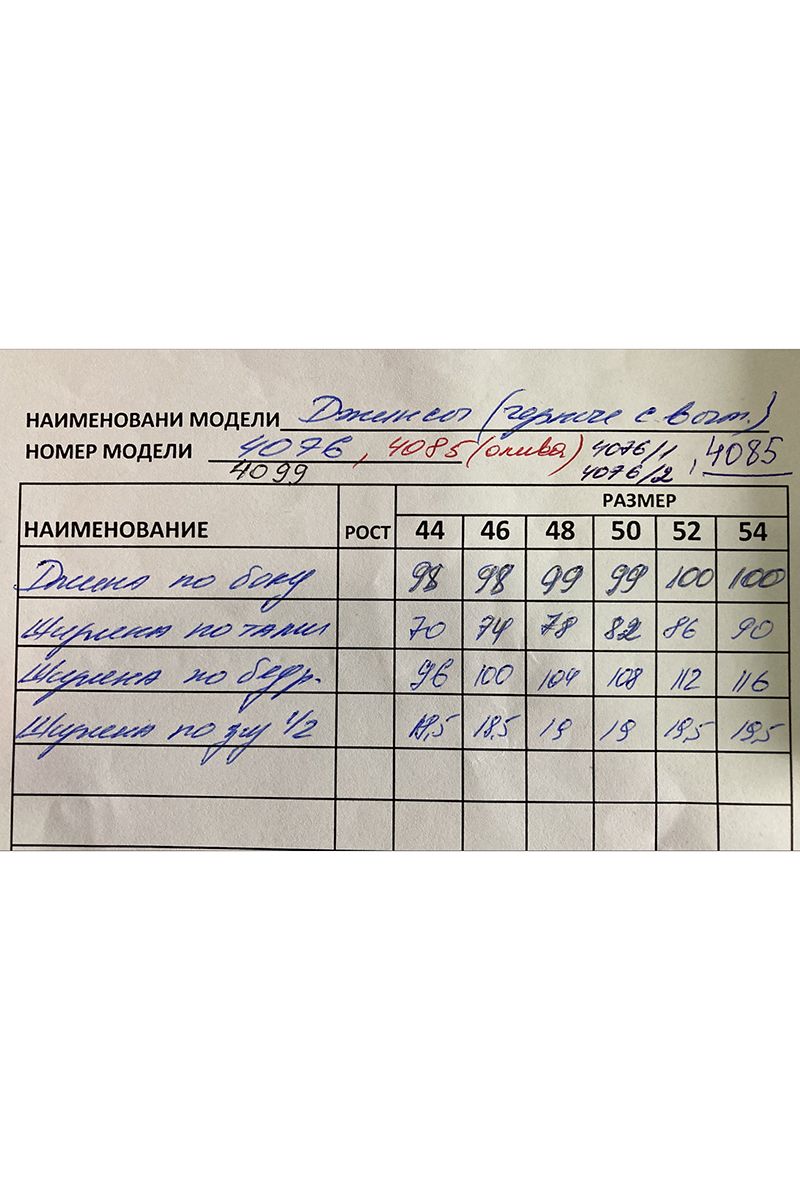 НАИМЕНОВАНИ МОДЕЛИ Джинсы (черные с выт.)
НОМЕР МОДЕЛИ 4076, 4085 (олива) 4076/1, 4085
4099 4076/2
НАИМЕНОВАНИЕ РОСТ РАЗМЕР
44 46 48 50 52 54
Длина по боку 98 98 99 99 100 100
Ширина по талии 70 74 78 82 86 90
Ширина по бедр. 96 100 104 108 112 116
Ширина по низу 1/2 18,5 18,5 19 19 19,5 19,5